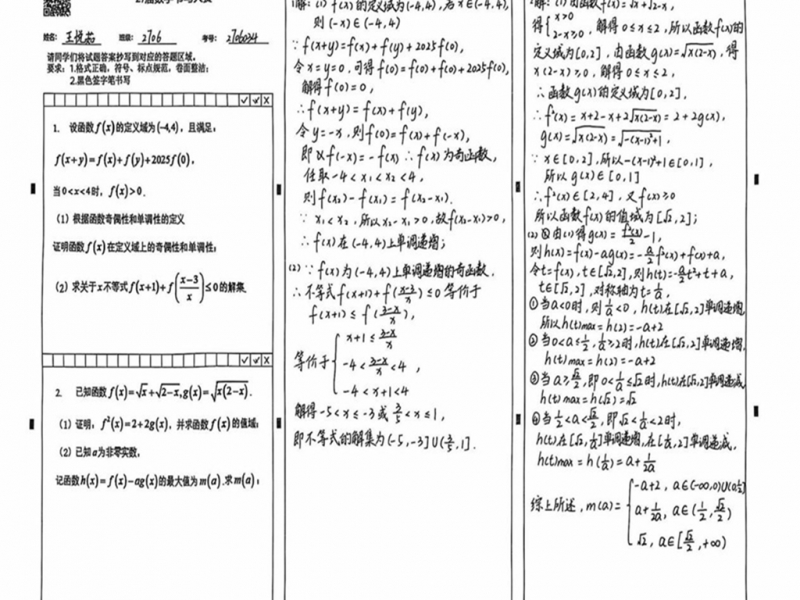 姓名: 王悦茹 班级: 2706 考号: 2706034
请同学们将试题答案抄写到对应的答题区域。
要求: 1.格式正确, 符号、标点规范, 卷面整洁;
2.黑色签字笔书写
1. 设函数f(x)的定义域为(-4,4), 且满足:
f(x+y)=f(x)+f(y)+2025f(0),
当0<x<4时, f(x)>0.
(1) 根据函数奇偶性和单调性的定义
证明函数f(x)在定义域上的奇偶性和单调性;
(2) 求关于x不等式f(x+1)+f((x-3)/x)≤0的解集.
2. 已知函数f(x)=√x+√(2-x), g(x)=√(x(2-x)).
(1) 证明: f²(x)=2+2g(x), 并求函数f(x)的值域;
(2) 已知a为非零实数,
记函数h(x)=f(x)-ag(x)的最大值为m(a).求m(a);
解: (1) f(x)的定义域为(-4,4), 若x∈(-4,4),
则(-x)∈(-4,4)
∵f(x+y)=f(x)+f(y)+2025f(0),
令x=y=0, 可得f(0)=f(0)+f(0)+2025f(0),
解得f(0)=0,
∴f(x+y)=f(x)+f(y),
令y=-x, 则f(0)=f(x)+f(-x),
即f(-x)=-f(x) ∴f(x)为奇函数,
任取-4<x₁<x₂<4,
则f(x₂)-f(x₁)=f(x₂-x₁).
∵x₁<x₂, 所以x₂-x₁>0, 故f(x₂-x₁)>0,
∴f(x)在(-4,4)上单调递增;
(2) ∵f(x)为(-4,4)上单调递增的奇函数,
∴不等式f(x+1)+f((x-3)/x)≤0等价于
f(x+1)≤f((3-x)/x),
等价于{x+1≤(3-x)/x
-4<(3-x)/x<4,
-4<x+1<4
解得-5<x≤-3或3/5<x≤1,
即不等式的解集为(-5,-3]∪(3/5,1].
解: (1) 由函数f(x)=√x+√(2-x),
得{x≥0 2-x≥0, 解得0≤x≤2, 所以函数f(x)的
定义域为[0,2], 由函数g(x)=√(x(2-x)), 得
x(2-x)≥0, 解得0≤x≤2,
∴函数g(x)的定义域为[0,2].
∴f²(x)=x+2-x+2√(x(2-x))=2+2g(x),
g(x)=√(x(2-x))=√(-(x-1)²+1),
∵x∈[0,2], 所以-(x-1)²+1∈[0,1],
所以g(x)∈[0,1]
∴f²(x)∈[2,4], 又f(x)≥0
所以函数f(x)的值域为[√2,2];
(2) 由(1)得g(x)=f²(x)/2-1,
则h(x)=f(x)-ag(x)=-a/2f²(x)+f(x)+a,
令t=f(x), t∈[√2,2], 则h(t)=-a/2t²+t+a,
t∈[√2,2], 对称轴为t=1/a,
①当a<0时, 则1/a<0, h(t)在[√2,2]单调递增,
所以h(t)max=h(2)=-a+2
②当0<a≤1/2, 1/a≥2时, h(t)在[√2,2]单调递增,
h(t)max=h(2)=-a+2
③当a≥√2/2, 即0<1/a≤√2时, h(t)在[√2,2]单调递减
h(t)max=h(√2)=√2
④当1/2<a<√2/2, 即√2<1/a<2时,
h(t)在[√2,1/a]单调递增, 在[1/a,2]单调递减,
h(t)max=h(1/a)=a+1/2a
综上所述, m(a)={-a+2, a∈(-∞,0)∪(0,1/2]
a+1/2a, a∈(1/2,√2/2)
√2, a∈[√2/2,+∞)